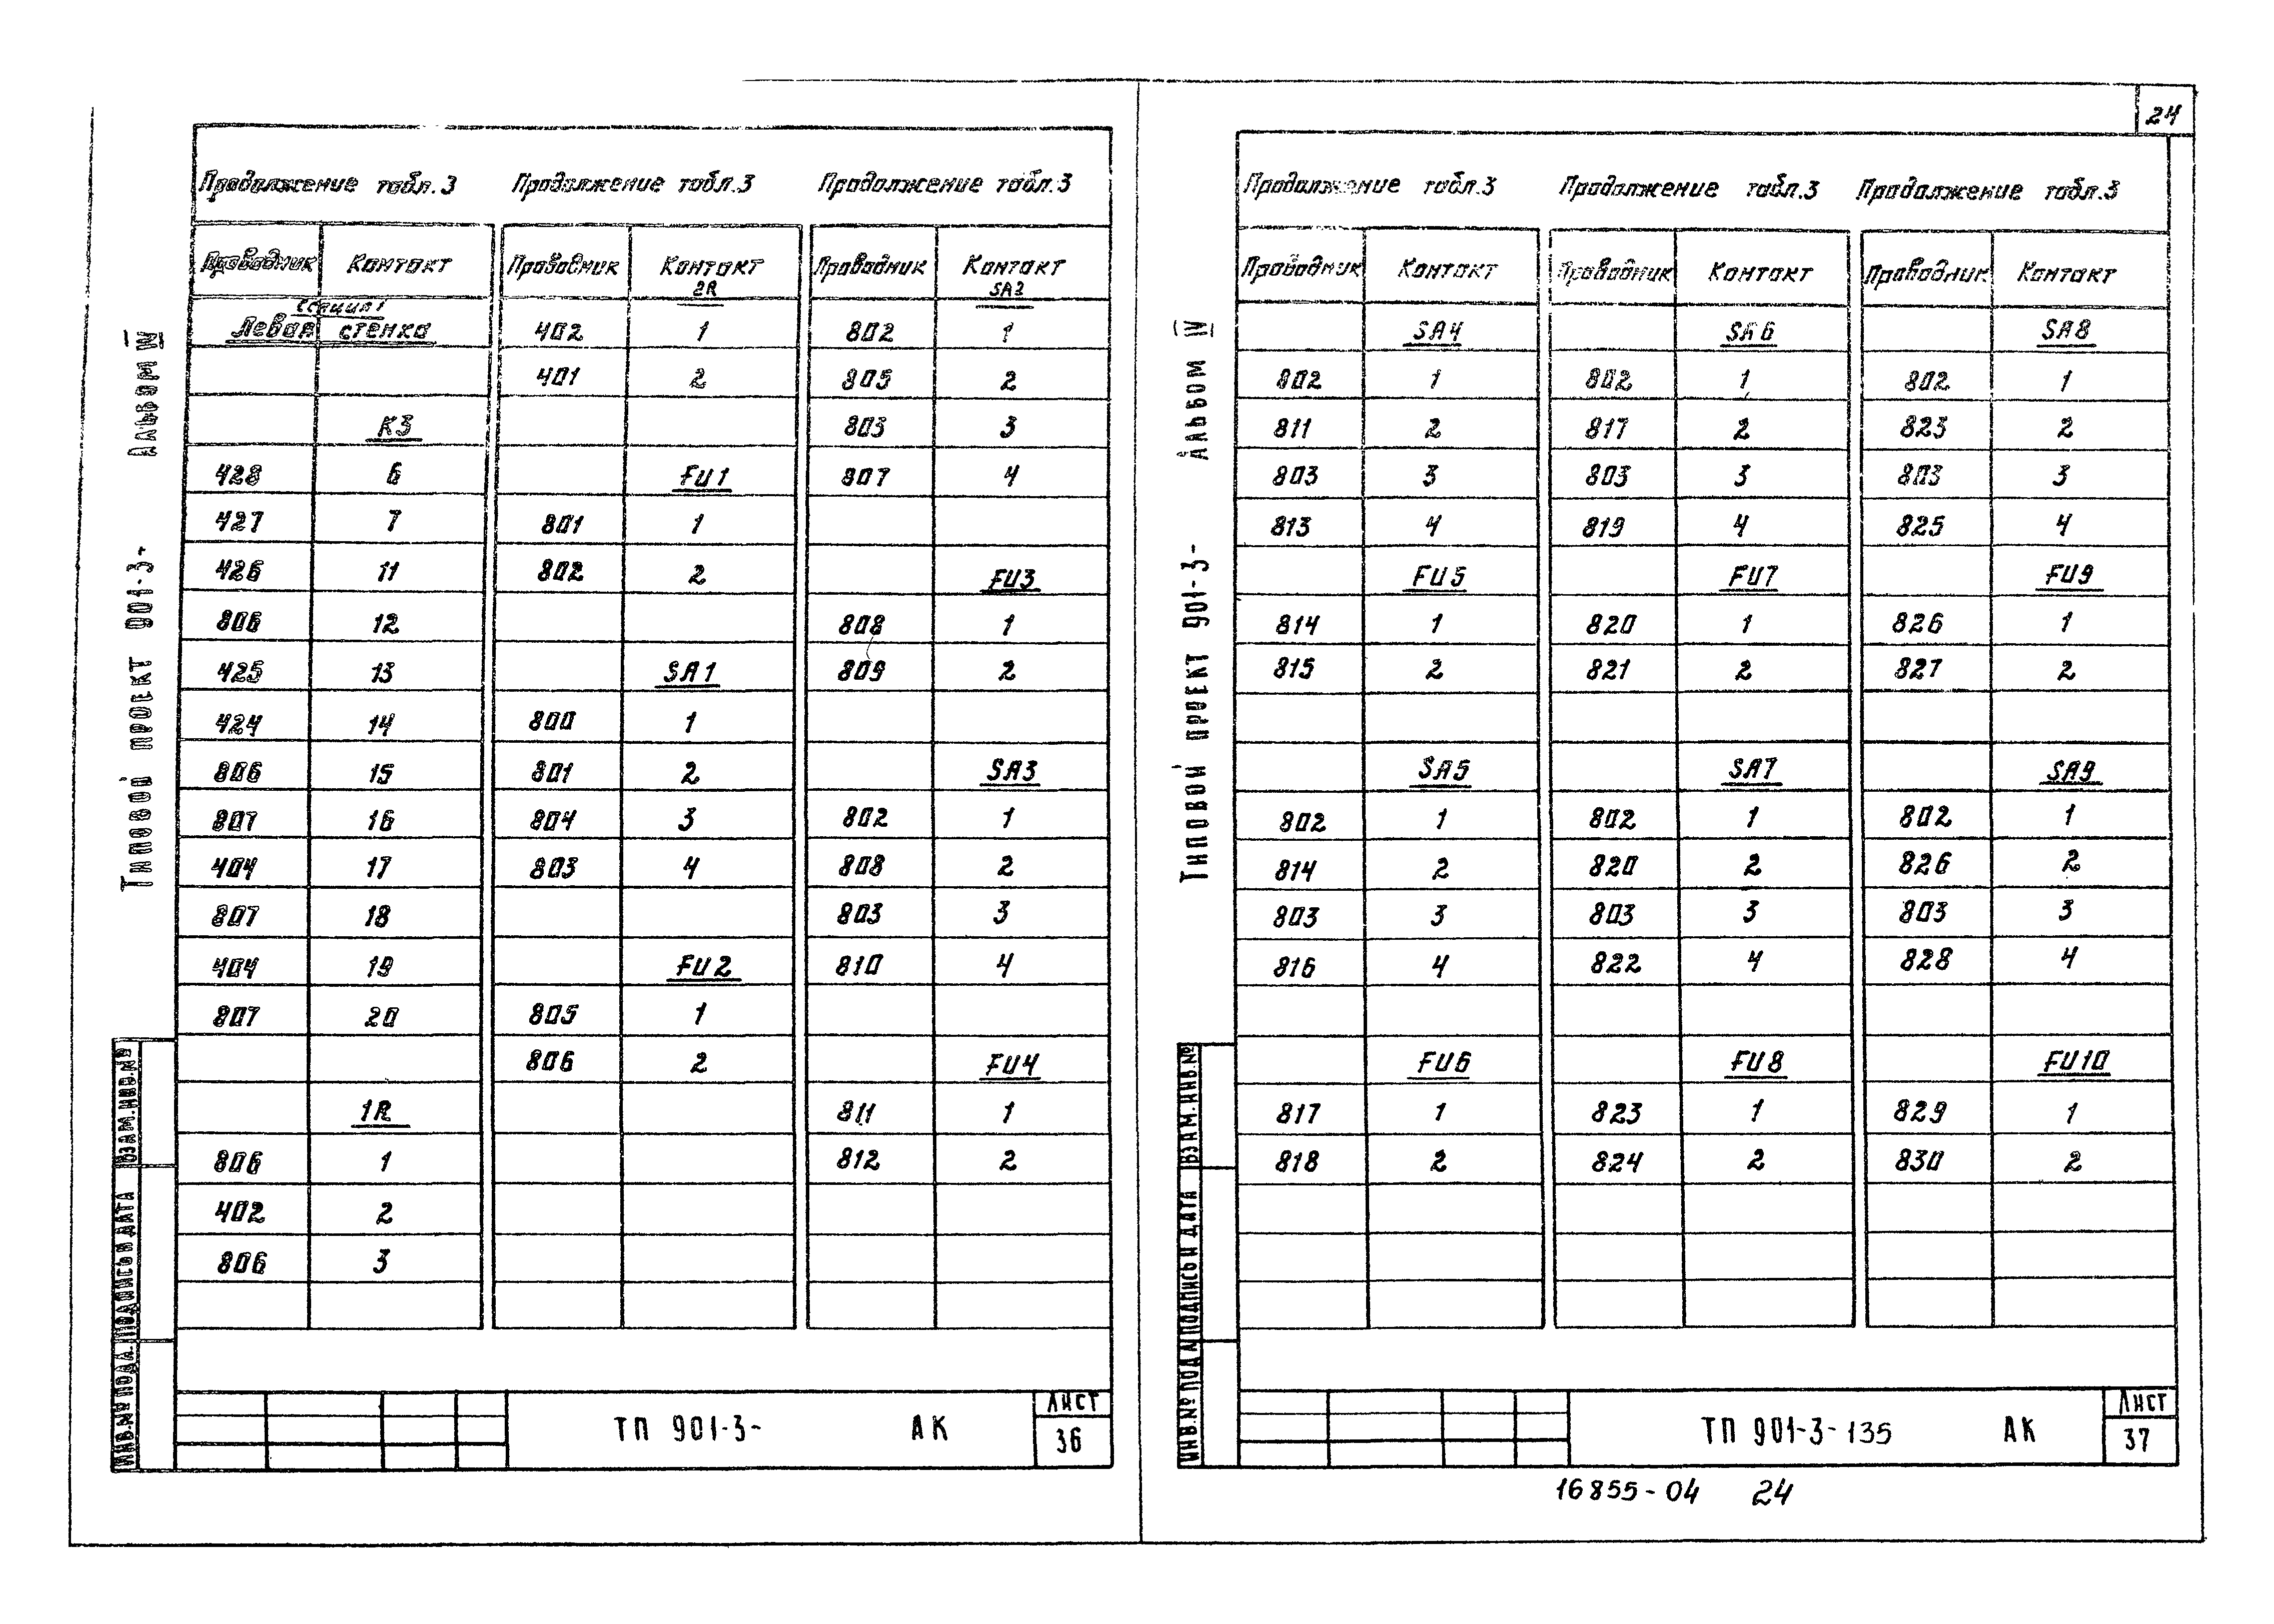 24
Альбом IV
Типовой проект 901-3-
Продолжение табл. 3 Продолжение табл. 3 Продолжение табл. 3
Проводник Контакт Проводник Контакт Проводник Контакт
2R SA2
Секция 1
Левая стенка 402 1 802 1
401 2 805 2
К3 803 3
428 6 FU1 807 4
427 7 801 1
426 11 802 2 FU3
806 12 808 1
425 13 SA1 809 2
424 14 800 1
806 15 801 2 SA3
807 16 804 3 802 1
404 17 803 4 808 2
807 18 803 3
404 19 FU2 810 4
807 20 805 1
806 2 FU4
1R 811 1
806 1 812 2
402 2
806 3
ИНВ.№ ПОДЛ. ПОДПИСЬ И ДАТА ВЗАМ.ИНВ.№
ТП 901-3- АК
ЛИСТ
36
Альбом IV
Типовой проект 901-3-
Продолжение табл. 3 Продолжение табл. 3 Продолжение табл. 3
Проводник Контакт Проводник Контакт Проводник Контакт
SA4 SA6 SA8
802 1 802 1 802 1
811 2 817 2 823 2
803 3 803 3 803 3
813 4 819 4 825 4
FU5 FU7 FU9
814 1 820 1 826 1
815 2 821 2 827 2
SA5 SA7 SA9
802 1 802 1 802 1
814 2 820 2 826 2
803 3 803 3 803 3
816 4 822 4 828 4
FU6 FU8 FU10
817 1 823 1 829 1
818 2 824 2 830 2
ИНВ.№ ПОДЛ ПОДПИСЬ И ДАТА ВЗАМ.ИНВ.№
ТП 901-3-135 АК
ЛИСТ
37
16855-04 24